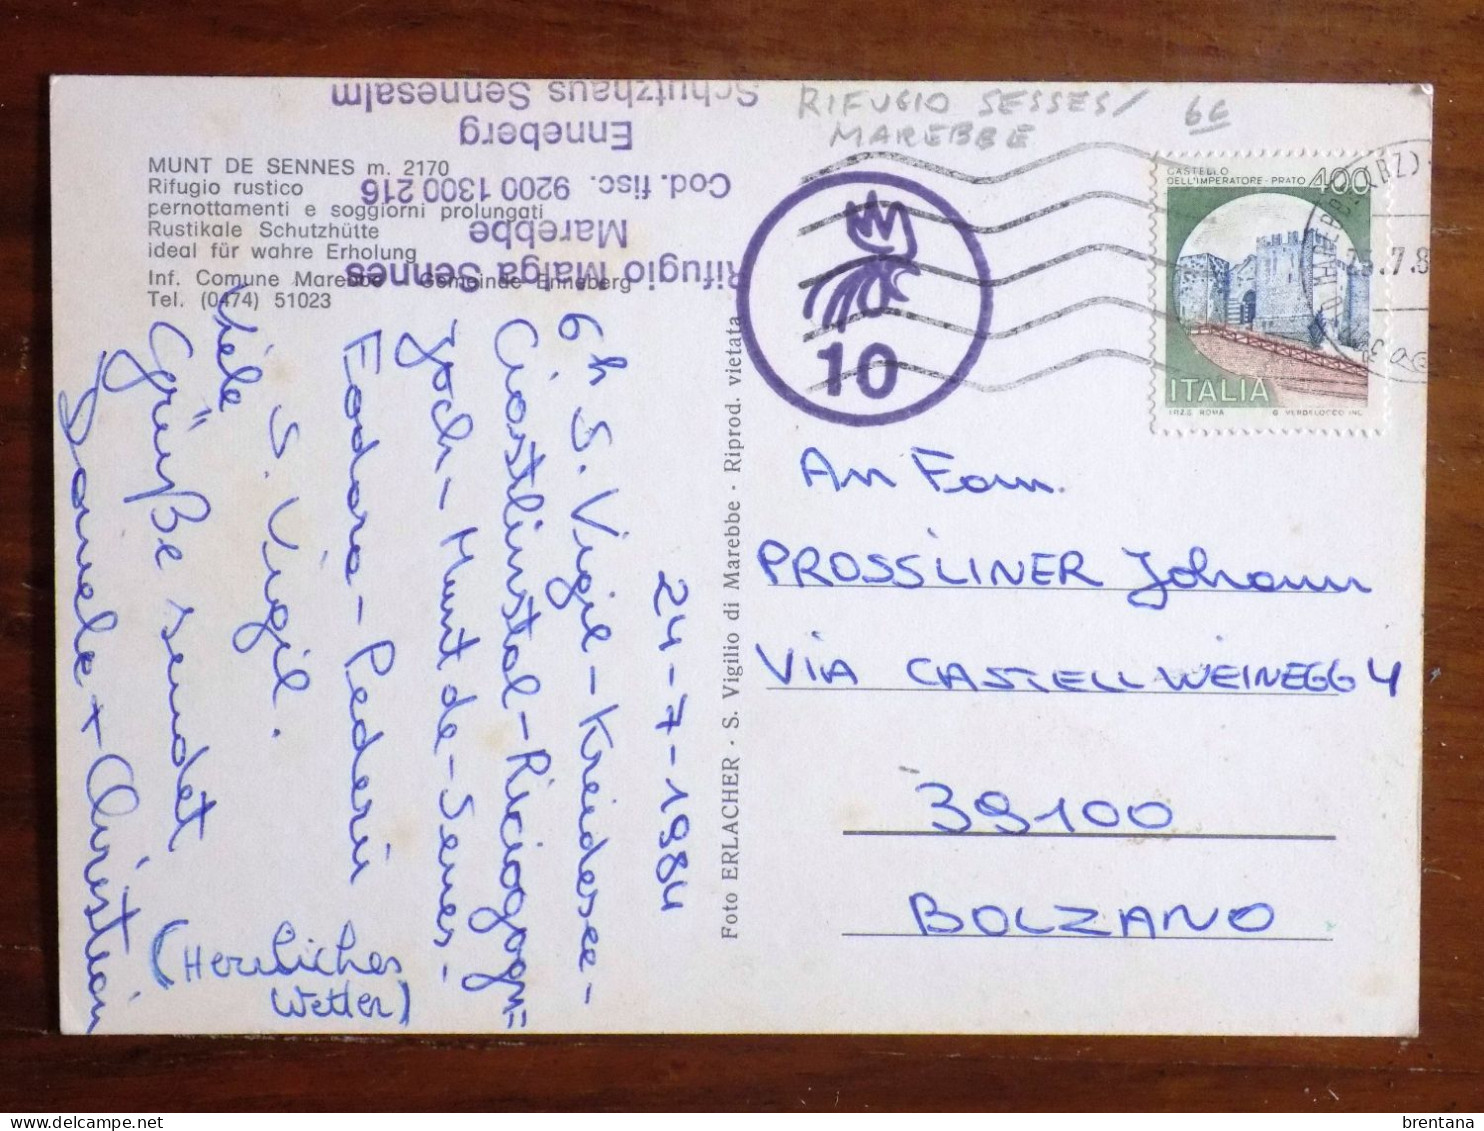 MUNT DE SENNES m. 2170
Rifugio rustico
pernottamenti e soggiorni prolungati
Rustikale Schutzhütte
ideal für wahre Erholung
Inf. Comune Marebbe - Gemeinde Enneberg
Tel. (0474) 51023
Rifugio Malga Sennes
Marebbe
Cod. fisc. 9200 1300 216
Enneberg
Schutzhaus Sennesalm
RIFUGIO SESSES/
MAREBBE
6€
10
CASTELLO
DELL'IMPERATORE - PRATO
400
ITALIA
I.P.Z.S. ROMA
24-7-1984
6h S. Vigil - Kreidesee -
Ciastlinstal - Riciogogn=
Joch - Munt de - Senes -
Fodara - Pederü
S. Vigil.
Viele
Grüße sendet
Daniele + Christian
(Herrliches
Wetter)
Foto ERLACHER · S. Vigilio di Marebbe · Riprod. vietata
An Fam.
PROSSLINER Johann
VIA CASTELL WEINEGG 4
39100
BOLZANO
brentana